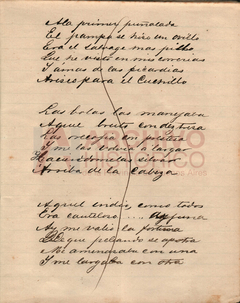 A la primer puñalada
El pampa se hizo un ovillo
Era el salvage mas pillo
Que he visto en mis correrias
Y a mas de las picardias
Arisco para el Cuchillo
Las bolas las manejaba
Aquel bruto con destreza
Las recogia con presteza
Y me las volvia a largar
Haciendomelas silvar
Arriba de la Cabeza
Aquel indio, como todos
Era cauteloso ... ayjuna
Ay me valió la fortuna
De que peleando se apotra
Me amenazaba con una
Y me largaba con otra